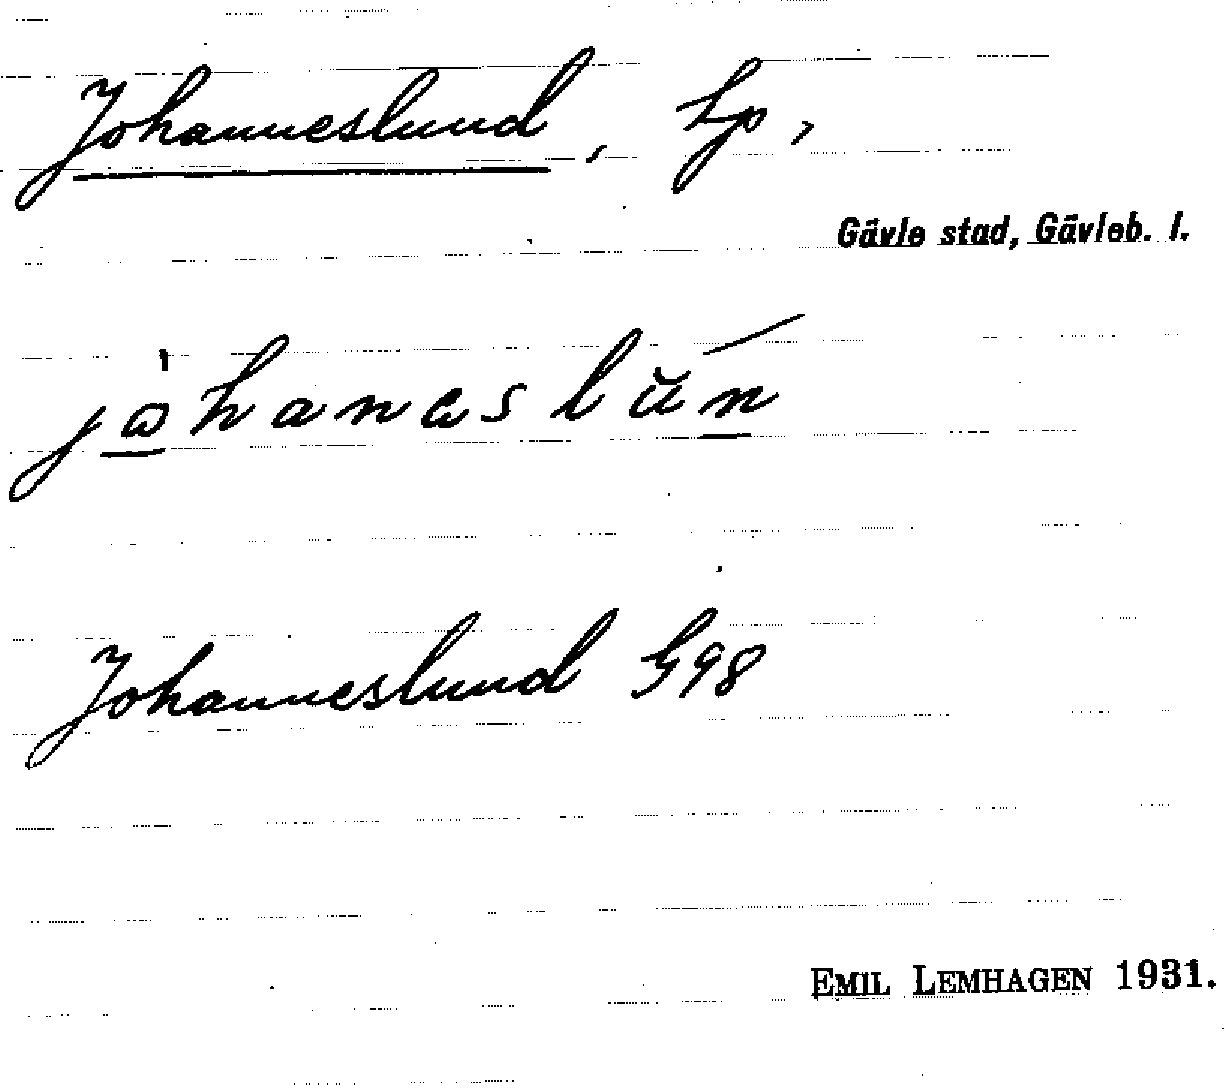 Johanneslund, Lp,
Gävle stad, Gävleb. l.
jòhanəslŭn
Johanneslund G98
EMIL LEMHAGEN 1931.